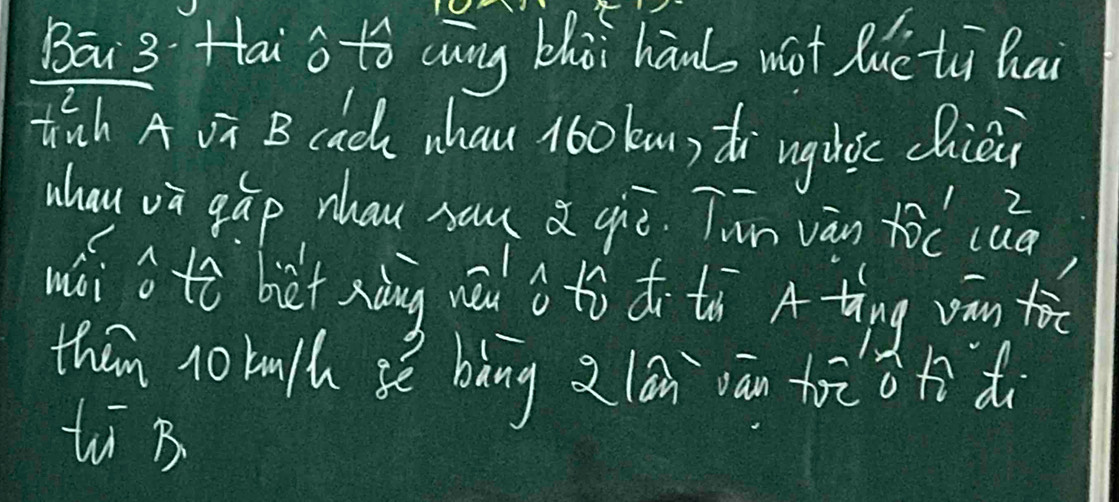 Bài 3. Hai ô tô cùng khởi hành một lúc từ hai
tỉnh A và B cách nhau 160km, đi ngược chiều
nhau và gặp nhau sau 2 giờ. Tìm vận tốc của
mỗi ô tô biết rằng nếu ô tô đi từ A tăng vận tốc
thêm 10 km/h sẽ bằng 2 lần vận tốc ô tô đi
từ B.